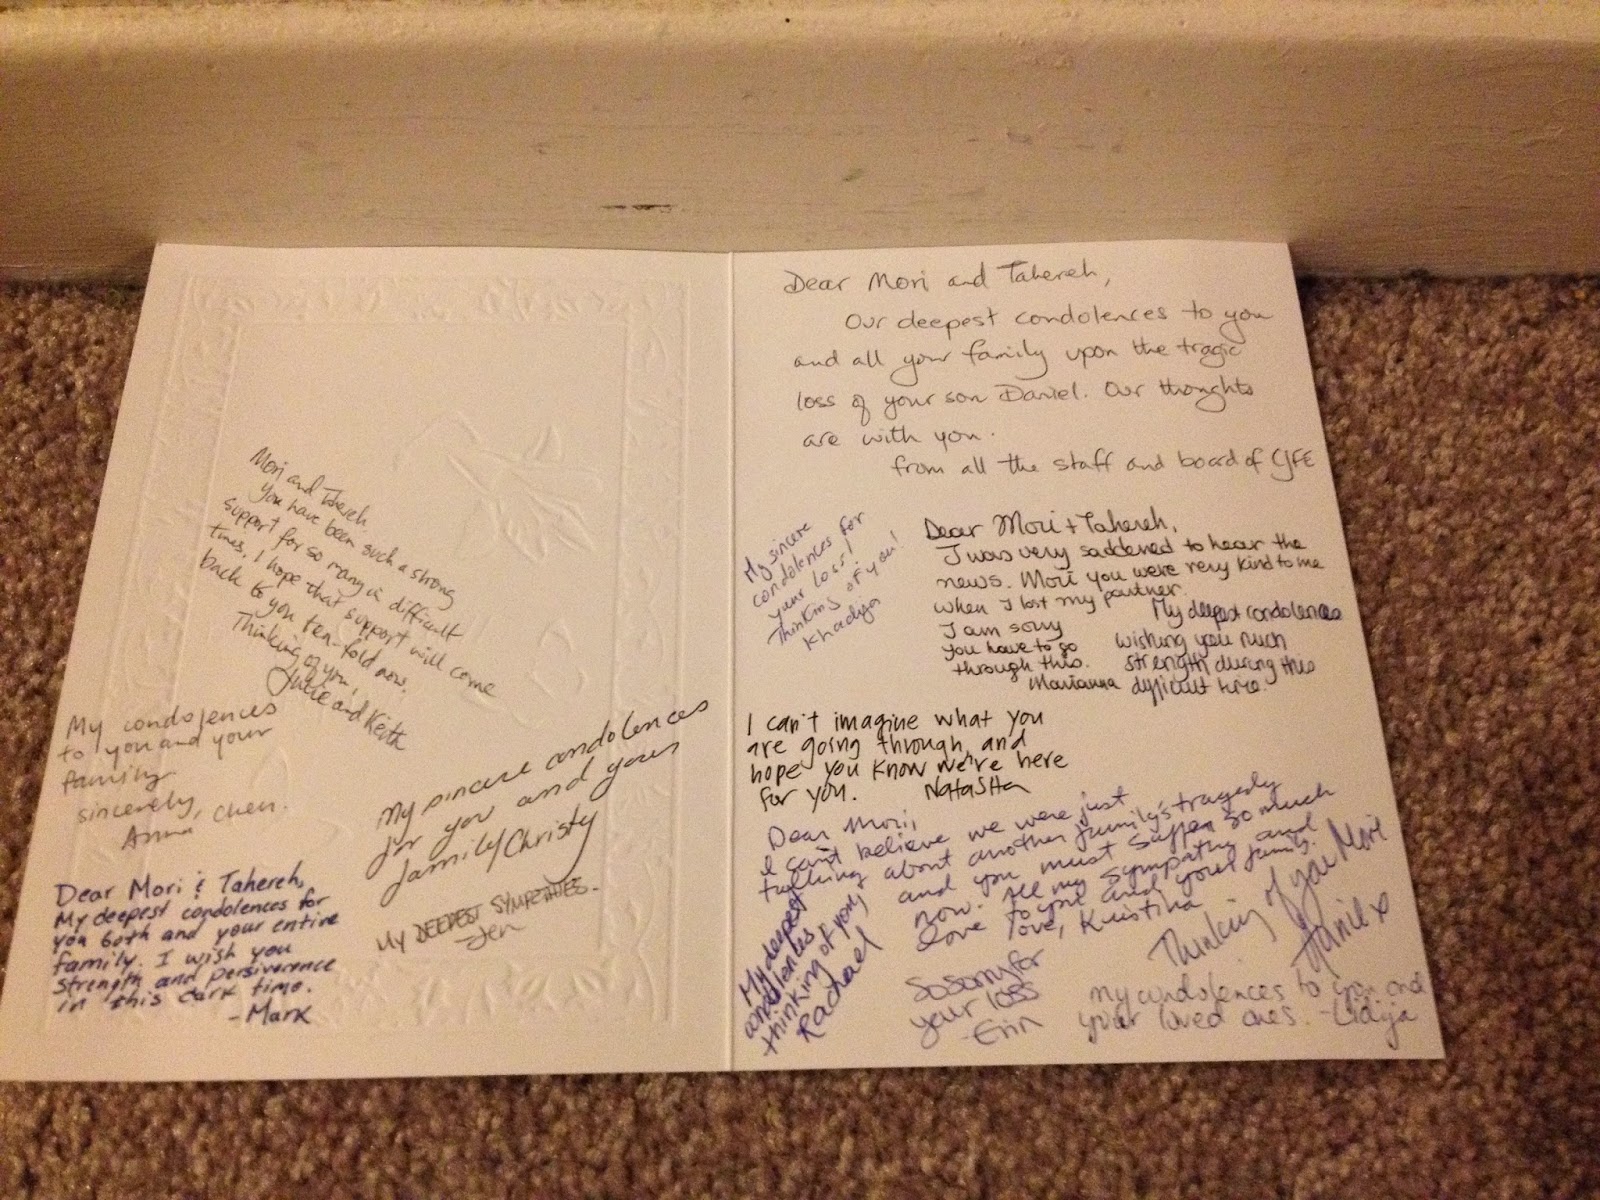 Mori and Tahereh
You have been such a strong
support for so many in difficult
times. I hope that support will come
back to you ten-fold now.
Thinking of you,
Julie and Keith
My condolences
to you and your
family
sincerely,
Anna Chen.
My sincere condolences
for you and your
family/Christy
Dear Mori & Tahereh,
My deepest condolences for
you both and your entire
family. I wish you
strength and perserverence
in this dark time.
-Mark
MY DEEPEST SYMPATHIES-
Jen
Dear Mori and Tahereh,
Our deepest condolences to you
and all your family upon the tragic
loss of your son Daniel. Our thoughts
are with you.
from all the staff and board of CJFE
My sincere
condolences for
your loss!
Thinking of you!
Khadija
Dear Mori + Tahereh,
I was very saddened to hear the
news. Mori you were very kind to me
when I lost my partner.
I am sorry
you have to go
through this.
Marianna
My deepest condolences
wishing you much
strength during this
difficult time.
I can't imagine what you
are going through, and
hope you know we're here
for you. NataSHa
Dear Mori,
I can't believe we were just
talking about another family's tragedy
and you must suffer so much
now. All my sympathy
to you and your family.
love, Kristina
My deepest
condolences
thinking of you
Rachael
So sorry for
your loss
-Erin
Thinking of you Mori
x
my condolences to you and
your loved ones. -Lidija